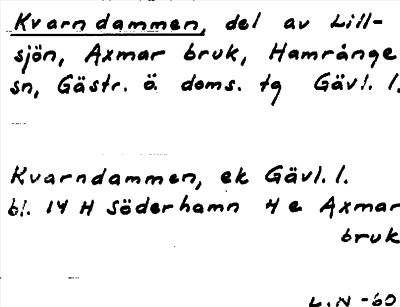 Kvarndammen, del av Lill-
sjön, Axmar bruk, Hamrånge
sn, Gästr. ö. doms. tg Gävl. l.
Kvarndammen, ek Gävl. l.
bl. 14 H Söderhamn 4 e Axmar
bruk
L.N -60